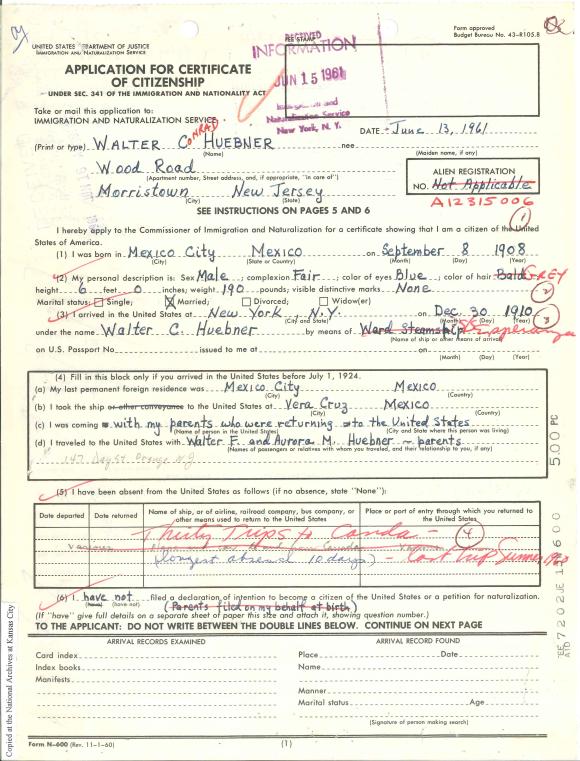 Form approved
Budget Bureau No. 43-R105.8
UNITED STATES DEPARTMENT OF JUSTICE
IMMIGRATION AND NATURALIZATION SERVICE
FEE STAMP
RECEIVED
INFORMATION
JUN 15 1961
Immigration and
Naturalization Service
New York, N. Y.
APPLICATION FOR CERTIFICATE
OF CITIZENSHIP
UNDER SEC. 341 OF THE IMMIGRATION AND NATIONALITY ACT
Take or mail this application to:
IMMIGRATION AND NATURALIZATION SERVICE,
DATE June 13, 1961
CONRAD
(Print or type) WALTER C. HUEBNER nee
(Name) (Maiden name, if any)
Wood Road
(Apartment number, Street address, and, if appropriate, "in care of")
Morristown New Jersey
(City) (State)
ALIEN REGISTRATION
NO. Not Applicable
A12315006
SEE INSTRUCTIONS ON PAGES 5 AND 6
1
I hereby apply to the Commissioner of Immigration and Naturalization for a certificate showing that I am a citizen of the United
States of America.
(1) I was born in Mexico City Mexico on September 8 1908
(City) (State or Country) (Month) (Day) (Year)
(2) My personal description is: Sex Male; complexion Fair; color of eyes Blue; color of hair Bald GREY
height 6 feet 0 inches; weight 190 pounds; visible distinctive marks None
2
Marital status: Single; Married; Divorced; Widow(er)
(3) I arrived in the United States at New York, N.Y. on Dec. 30 1910
(City and State) (Month) (Day) (Year)
3
under the name Walter C. Huebner by means of Ward Steamship Esperanza
(Name of ship or other means of arrival)
on U.S. Passport No. issued to me at on
(Month) (Day) (Year)
(4) Fill in this block only if you arrived in the United States before July 1, 1924.
(a) My last permanent foreign residence was Mexico City Mexico
(City) (Country)
(b) I took the ship or other conveyance to the United States at Vera Cruz Mexico
(City) (Country)
(c) I was coming with my parents who were returning to the United States
(Name of person in the United States) (City and State where this person was living)
(d) I traveled to the United States with Walter F. and Aurora M. Huebner - parents
(Names of passengers or relatives with whom you traveled, and their relationship to you, if any)
147 Day St. Orange N.J.
(5) I have been absent from the United States as follows (if no absence, state "None"):
Date departed Date returned Name of ship, or of airline, railroad company, bus company, or other means used to return to the United States Place or port of entry through which you returned to the United States
Thirty Trips to Canda - 4
(longest absense 10 days) - Last trip Summer 1960
(6) I have not filed a declaration of intention to become a citizen of the United States or a petition for naturalization.
(have) (have not) (Parents filed on my behalf at birth)
(If "have" give full details on a separate sheet of paper this size and attach it, showing question number.)
TO THE APPLICANT: DO NOT WRITE BETWEEN THE DOUBLE LINES BELOW. CONTINUE ON NEXT PAGE
ARRIVAL RECORDS EXAMINED
Card index
Index books
Manifests
ARRIVAL RECORD FOUND
Place Date
Name
Manner
Marital status Age
(Signature of person making search)
Form N-600 (Rev. 11-1-60)
(1)
Copied at the National Archives at Kansas City
5.00 PC